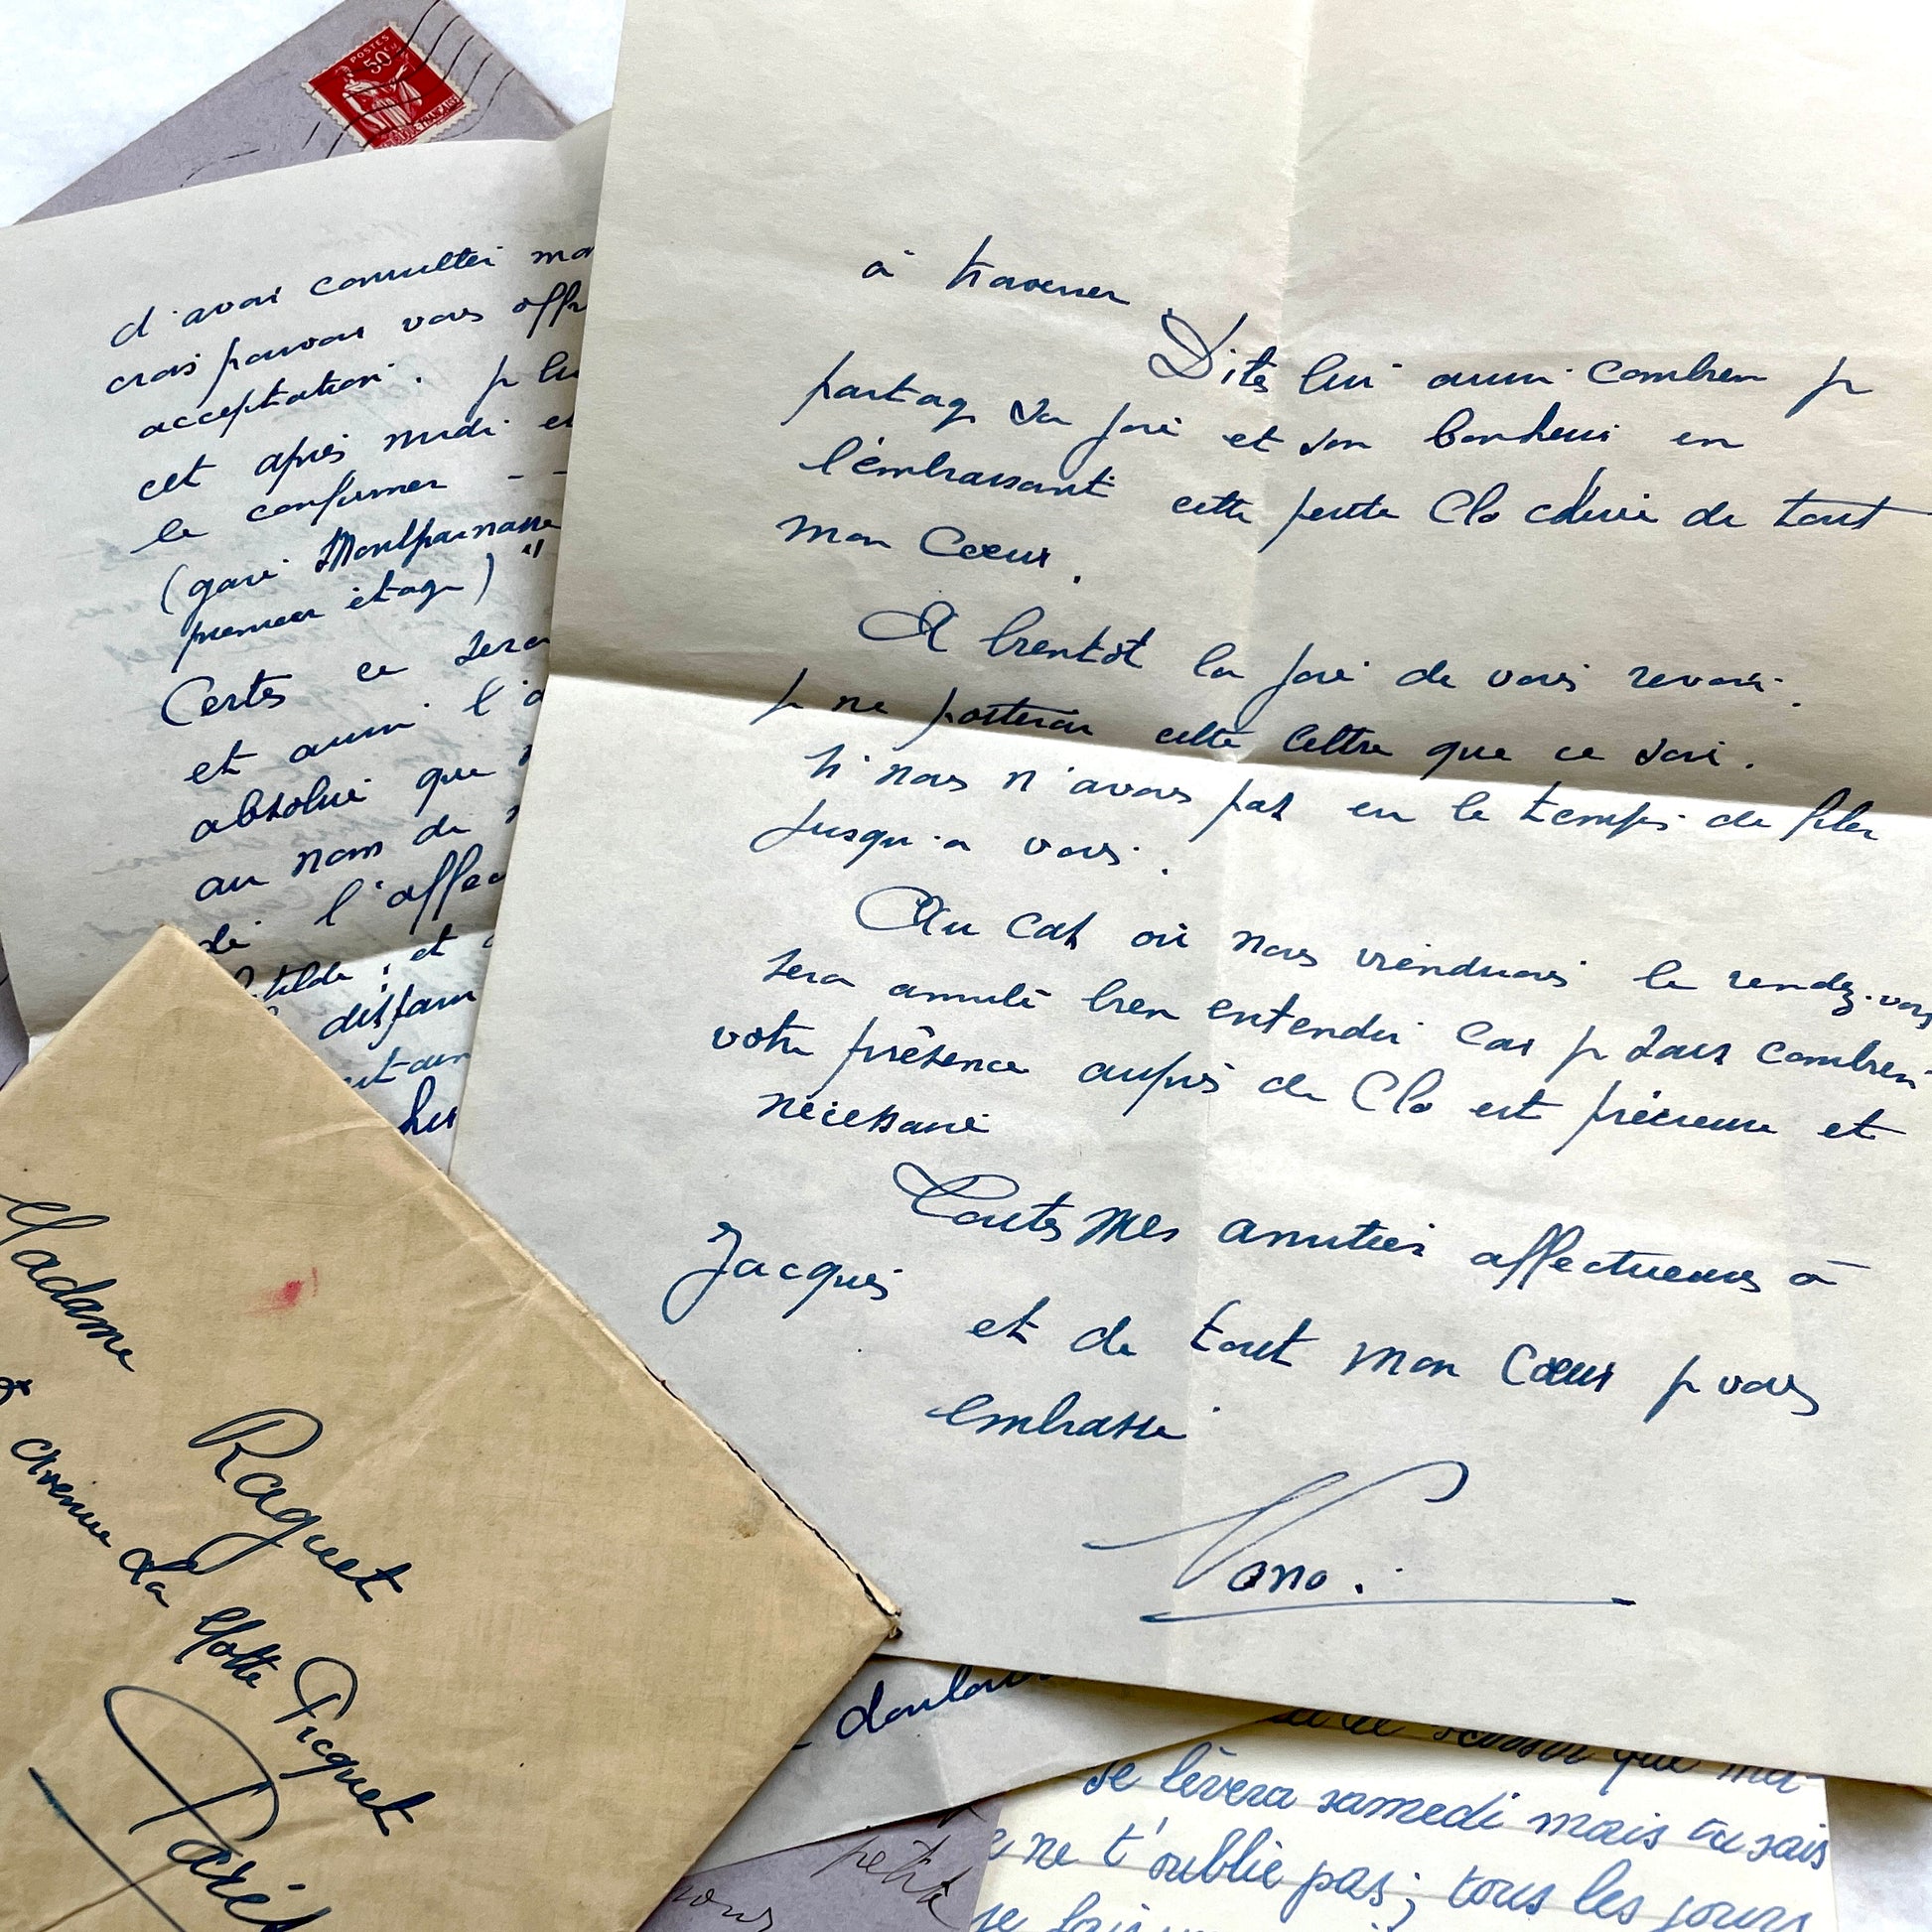 POSTES
50
d'avoir consulter
crois pouvoir vous
acceptation. je lui
cet après midi et
le confirmer - -
(gare Montparnasse
premier étage) "
Certes ce sera
et aussi
absolue que
au nom de
de l'affec
et

à traverser.
Dites lui aussi combien je
partage sa joie et son bonheur en
l'embrassant cette petite Clo chérie de tout
mon Coeur.
A bientôt la joie de vous revoir.
je ne posterai cette lettre que ce soir.
si nous n'avons pas eu le temps de filer
jusqu'à vous.
Au cas où nous viendrions le rendez-vous
sera annulé bien entendu car je sais combien
votre présence auprès de Clo est précieuse et
nécessaire
Toutes mes amitiés affectueuses à
Jacques
et de tout mon Coeur je vous
embrasse
Nano.

Madame
Raguet
avenue La Motte Picquet
Paris

que
se lèvera samedi mais tu sais
ne t'oublie pas; tous les jours
petite
nous